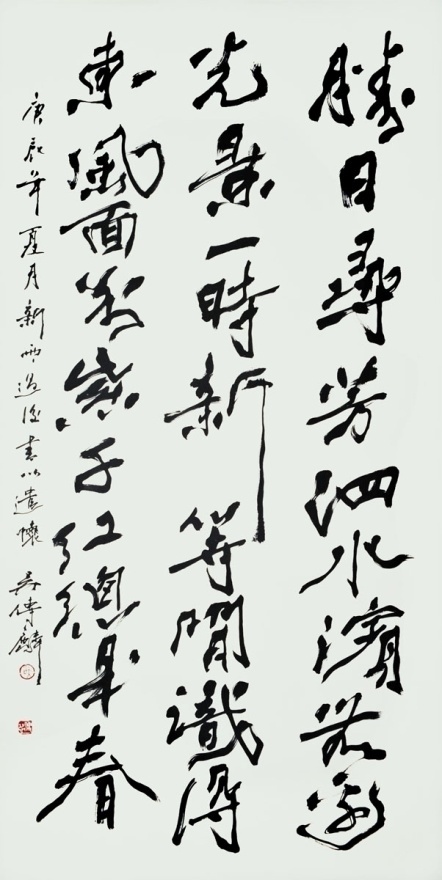 勝日尋芳泗水濱無邊
光景一時新等閒識得
東風面萬紫千紅總是春
庚辰年夏月新雨過後書以遣懷 吳傳麟